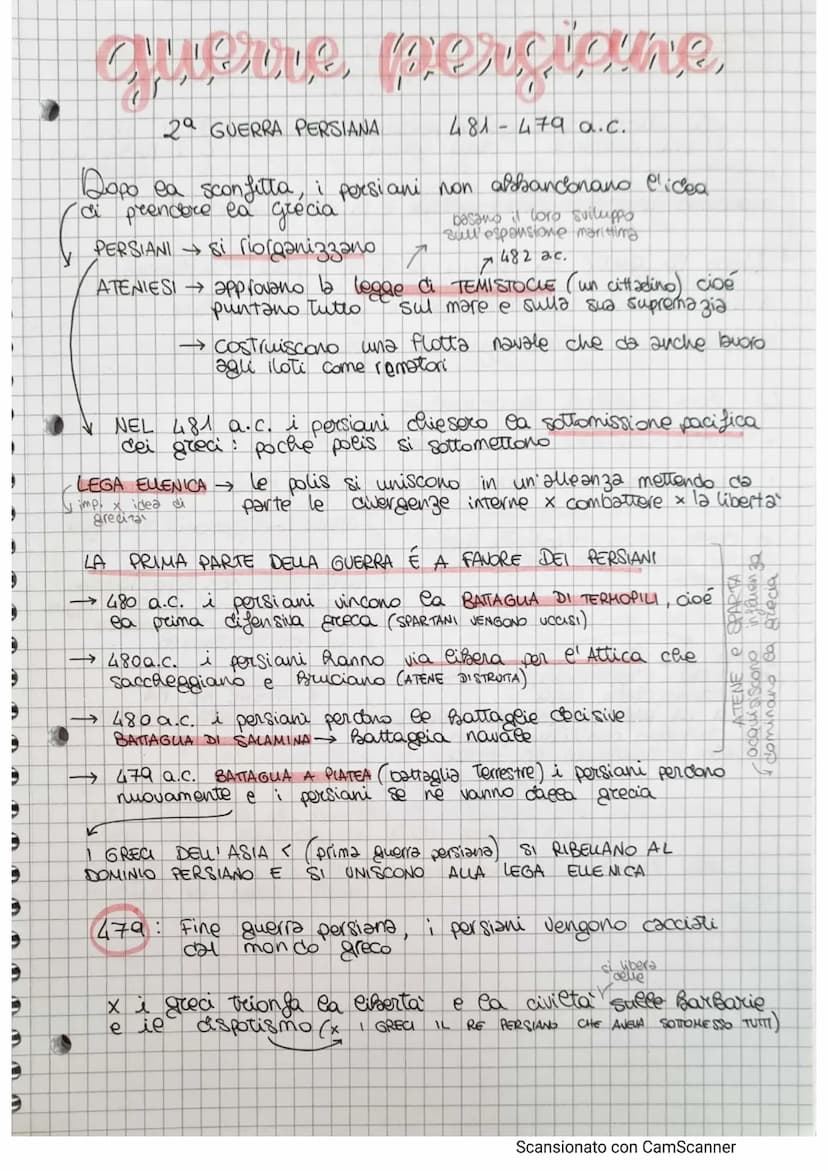 guerre persiane
2ª GUERRA PERSIANA 481 - 479 a.C.
Dopo la sconfitta, i persiani non abbandonano l'idea
di prendere la grecia
basano il loro sviluppo
sull'espansione marittima
PERSIANI → si riorganizzano
482 ac.
ATENIESI → approvano la legge di TEMISTOCLE (un cittadino) cioé
puntano tutto sul mare e sulla sua supremazia
→ costruiscono una flotta navale che da anche lavoro
agli iloti come rematori
NEL 481 a.c. i persiani chiesero la sottomissione pacifica
dei greci : poche poleis si sottomettono
LEGA ELLENICA → le polis si uniscono in un'alleanza mettendo da
parte le divergenze interne x combattere x la libertà
imp. x idea di
grecità
LA PRIMA PARTE DELLA GUERRA É A FAVORE DEI PERSIANI
→ 480 a.c. i persiani vincono la BATTAGLIA DI TERMOPILI, cioé
la prima difensiva greca (SPARTANI VENGONO UCCISI)
→ 480a.c. i persiani hanno via libera per l'Attica che
saccheggiano e bruciano (ATENE DISTRUTTA)
→ 480 a.c. i persiani perdono le battaglie decisive
BATTAGLIA DI SALAMINA → Battaglia navale
→ 479 a.c. BATTAGLIA A PLATEA (battaglia terrestre) i persiani perdono
nuovamente e i persiani se ne vanno dalla grecia
ATENE e SPARTA
acquisiscono influenza
dominano la grecia
I GRECI DELL'ASIA < (prima guerra persiana) SI RIBELLANO AL
DOMINIO PERSIANO E SI UNISCONO ALLA LEGA ELLENICA
479 : Fine guerra persiana, i persiani vengono cacciati
dal mondo greco
si libera
delle
x i greci trionfa la libertà e la civiltà sulle barbarie
e il dispotismo (x I GRECI IL RE PERSIANO CHE AVEVA SOTTOMESSO TUTTI)
Scansionato con CamScanner